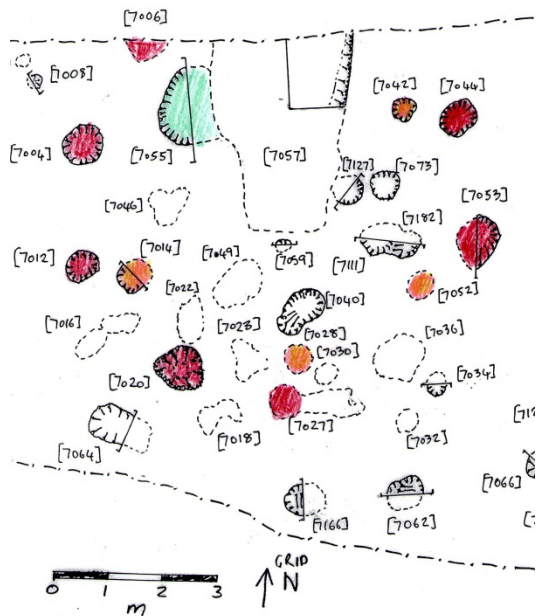 [7006]
[7008]
[7042]
[7044]
[7004]
[7055]
[7057]
[7127]
[7073]
[7053]
[7046]
[7182]
[7012]
[7014]
[7049]
[7059]
[7111]
[7022]
[7040]
[7052]
[7016]
[7023]
[7028]
[7036]
[7030]
[7034]
[7020]
[7018]
[7027]
[7032]
[7064]
[7066]
[7166]
[7062]
0 1 2 3
m
GRID
N